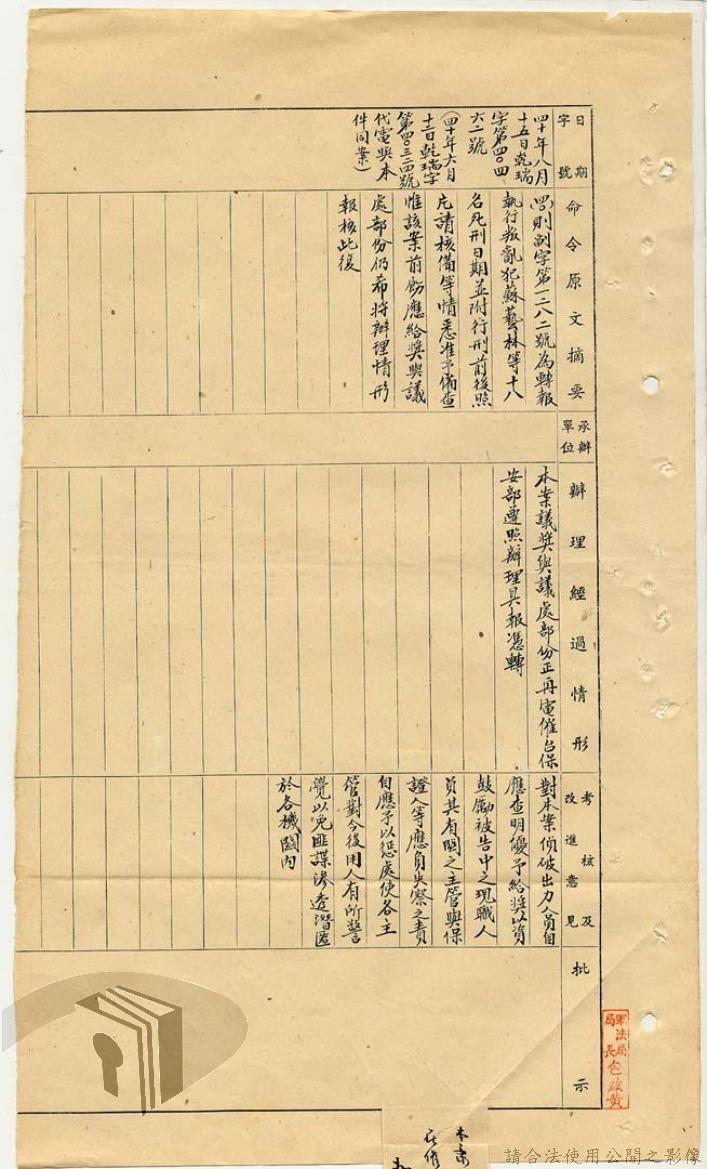 日期
字號
四十年八月
十五日乾瑞
字第四〇四
六二號
(四十年六月
十二日乾瑞字
第四〇三二四號
代電與本
件同案)
命令原文摘要
(四)則副字第一二八二號為轉報
執行叛亂犯蘇藝林等十八
名死刑日期並附行刑前後照
片請核備等情悉准予備查
惟該案前飭應給獎與議
處部份仍希將辦理情形
報核此復
承辦
單位
辦理經過情形
本案議獎與議處部份正再電催台保
安部遵照辦理具報憑轉
考核及
改進意見
對本案偵破出力人員自
應查明優予給獎以資
鼓勵被告中之現職人
員其有關之主管與保
證人等應負失察之責
自應予以懲處使各主
管對今後用人有所警
覺以免匪諜滲透潛匿
於各機關內
批示
軍法局
局長包啟黃
本案
請合法使用公開之影像